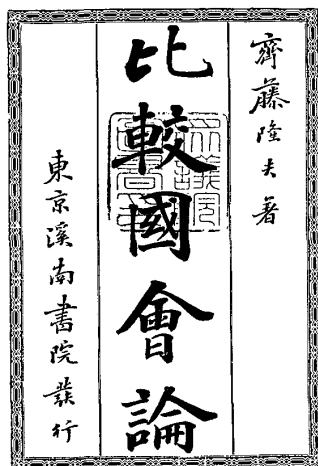 齊藤隆夫著
比較國會論
東京溪南書院發行